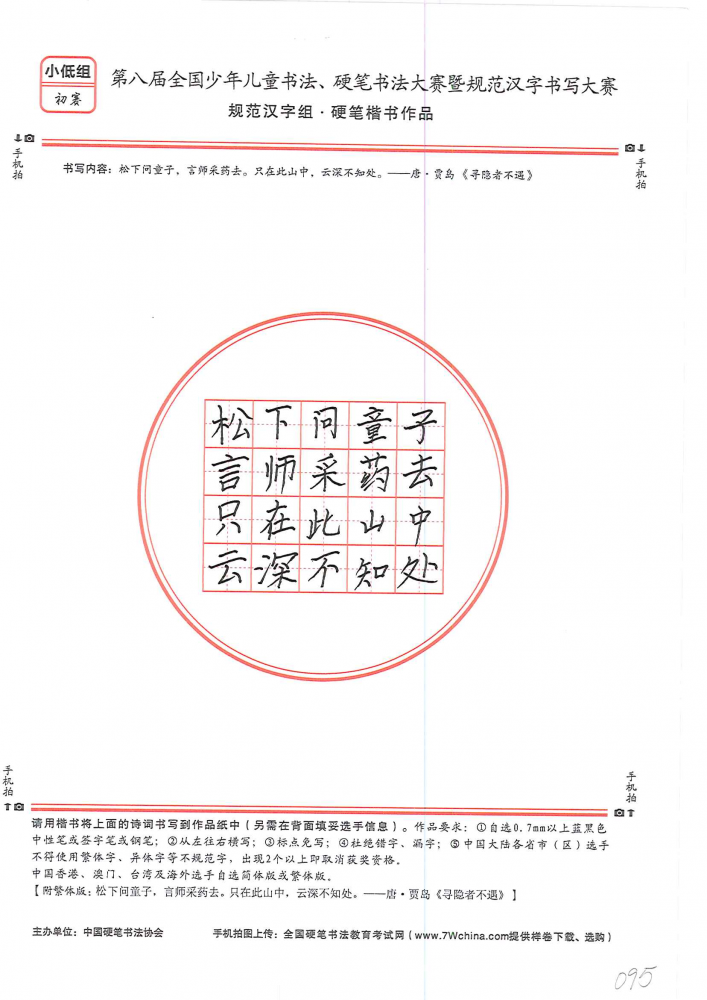 小低组
初赛
第八届全国少年儿童书法、硬笔书法大赛暨规范汉字书写大赛
规范汉字组·硬笔楷书作品
手机拍
手机拍
书写内容：松下问童子，言师采药去。只在此山中，云深不知处。——唐·贾岛《寻隐者不遇》
松下问童子
言师采药去
只在此山中
云深不知处
手机拍
手机拍
请用楷书将上面的诗词书写到作品纸中（另需在背面填妥选手信息）。作品要求：①自选0.7mm以上蓝黑色
中性笔或签字笔或钢笔；②从左往右横写；③标点免写；④杜绝错字、漏字；⑤中国大陆各省市（区）选手
不得使用繁体字、异体字等不规范字，出现2个以上即取消获奖资格。
中国香港、澳门、台湾及海外选手自选简体版或繁体版。
【附繁体版：松下问童子，言师采药去。只在此山中，云深不知处。——唐·贾岛《寻隐者不遇》】
主办单位：中国硬笔书法协会 手机拍图上传：全国硬笔书法教育考试网（www.7Wchina.com提供样卷下载、选购）
095